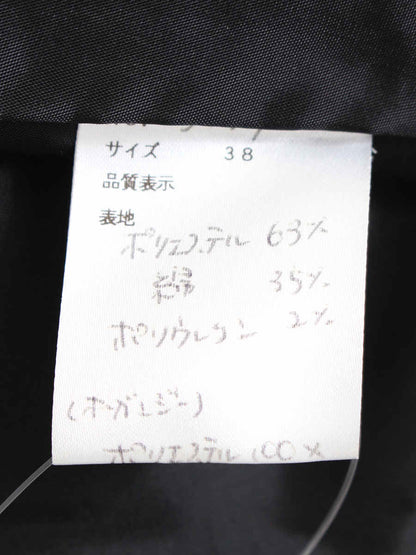 サイズ 38
品質表示
表地
ポリエステル 63%
綿 35%
ポリウレタン 2%
(オーガンジー)
ポリエステル 100%